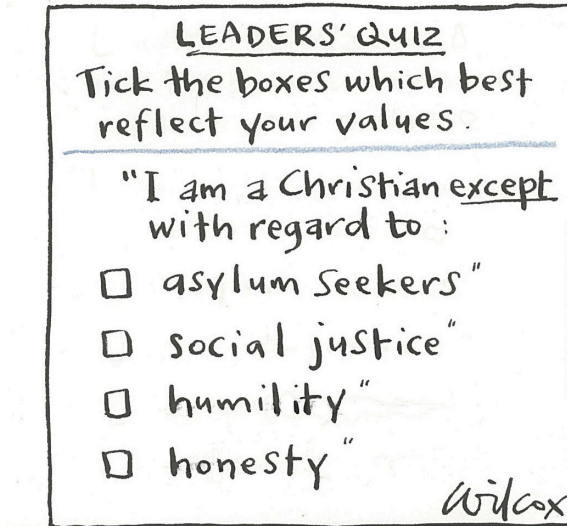 LEADERS' QUIZ
Tick the boxes which best
reflect your values.
"I am a Christian except
with regard to :
asylum seekers"
social justice"
humility"
honesty"
Wilcox